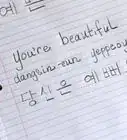 You're beautiful
dangsin-eun yeppeoyo
당신은 예뻐